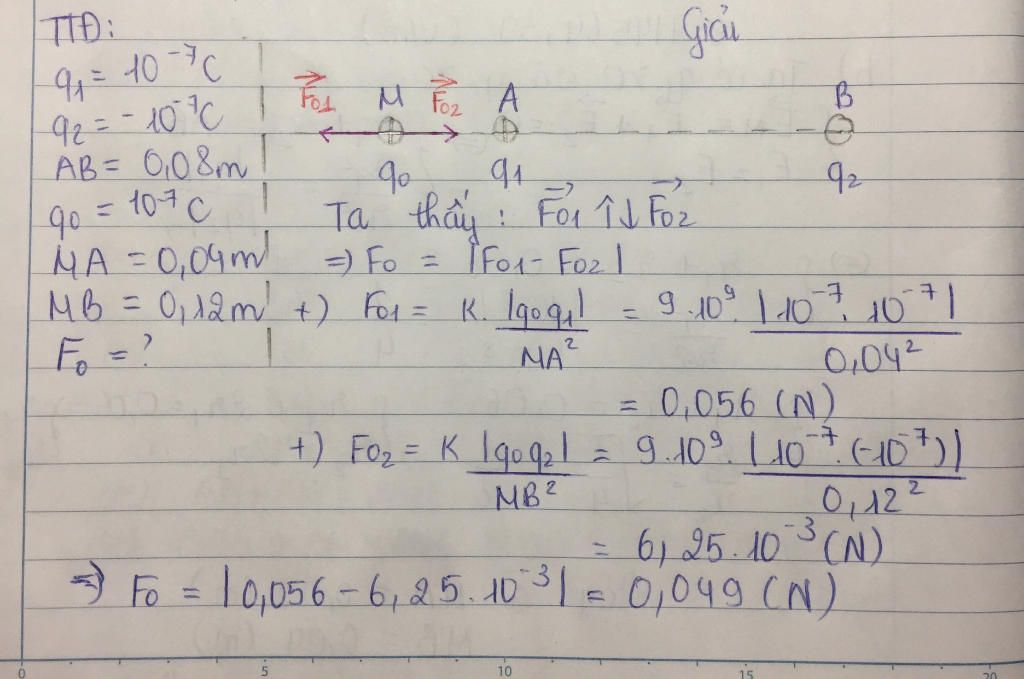 TTĐ:
Giải
q1 = 10⁻⁷C
q2 = -10⁻⁷C
AB = 0,08m
q0 = 10⁻⁷C
MA = 0,04m
MB = 0,12m
F₀ = ?
F⃗01 M F⃗02 A B
q0 q1 q2
Ta thấy : F⃗01 ↑↓ F⃗02
=> F0 = |F01 - F02|
+) F01 = K. |q0q1| / MA² = 9.10⁹. |10⁻⁷. 10⁻⁷| / 0,04²
= 0,056 (N)
+) F02 = K |q0q2| / MB² = 9.10⁹. |10⁻⁷.(-10⁻⁷)| / 0,12²
= 6,25.10⁻³ (N)
=> F0 = |0,056 - 6,25.10⁻³| = 0,049 (N)
0 5 10 15 20